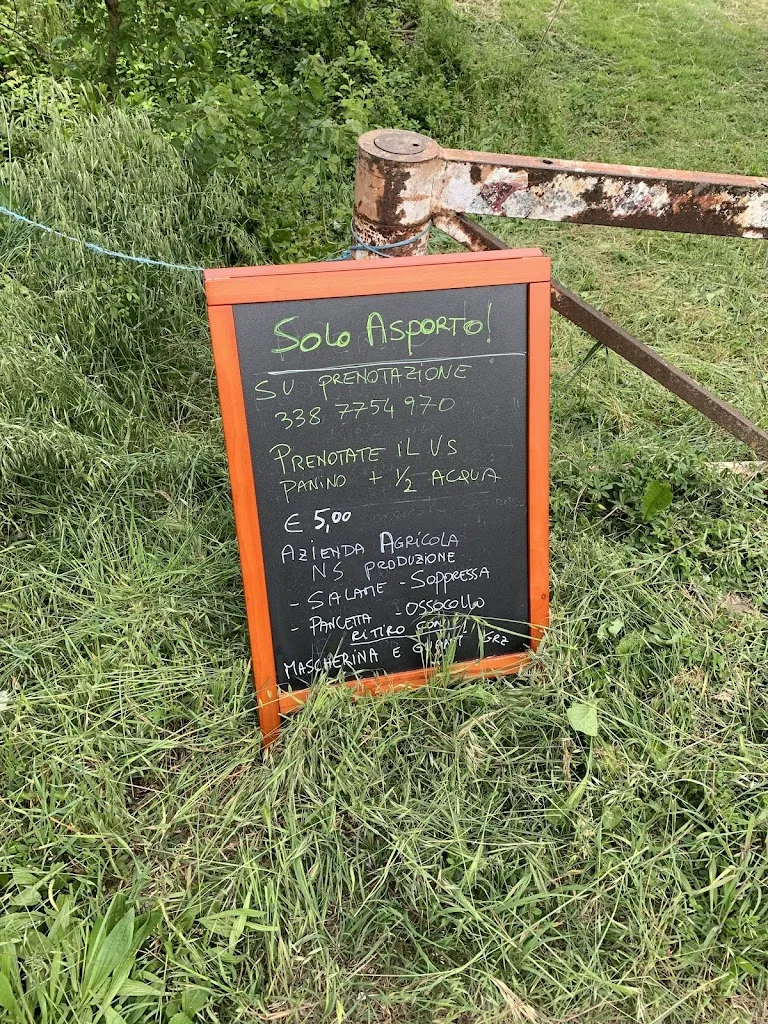 Solo Asporto!
SU PRENOTAZIONE
338 7754 970
PRENOTATE iL VS
PANINO + 1/2 ACQUA
€ 5,00
AZIENDA AGRICOLA
NS PRODUZIONE
- SALAME - SOPPRESSA
- PANCETTA - OSSOCOLLO
RITIRO CON
MASCHERINA E GUANTI GRZ